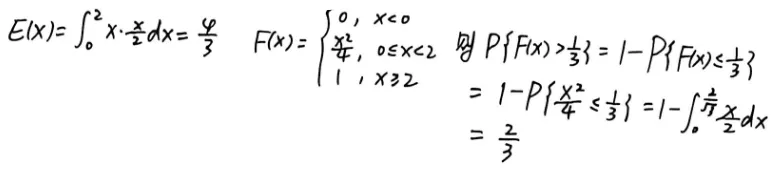 E(x)=∫₀² x·x/2 dx=4/3 F(x)={0, x<0; x²/4, 0≤x<2; 1, x≥2 则 P{F(x)>1/3}=1-P{F(x)≤1/3}
=1-P{x²/4≤1/3}=1-∫₀^(2/√3) x/2 dx
=2/3